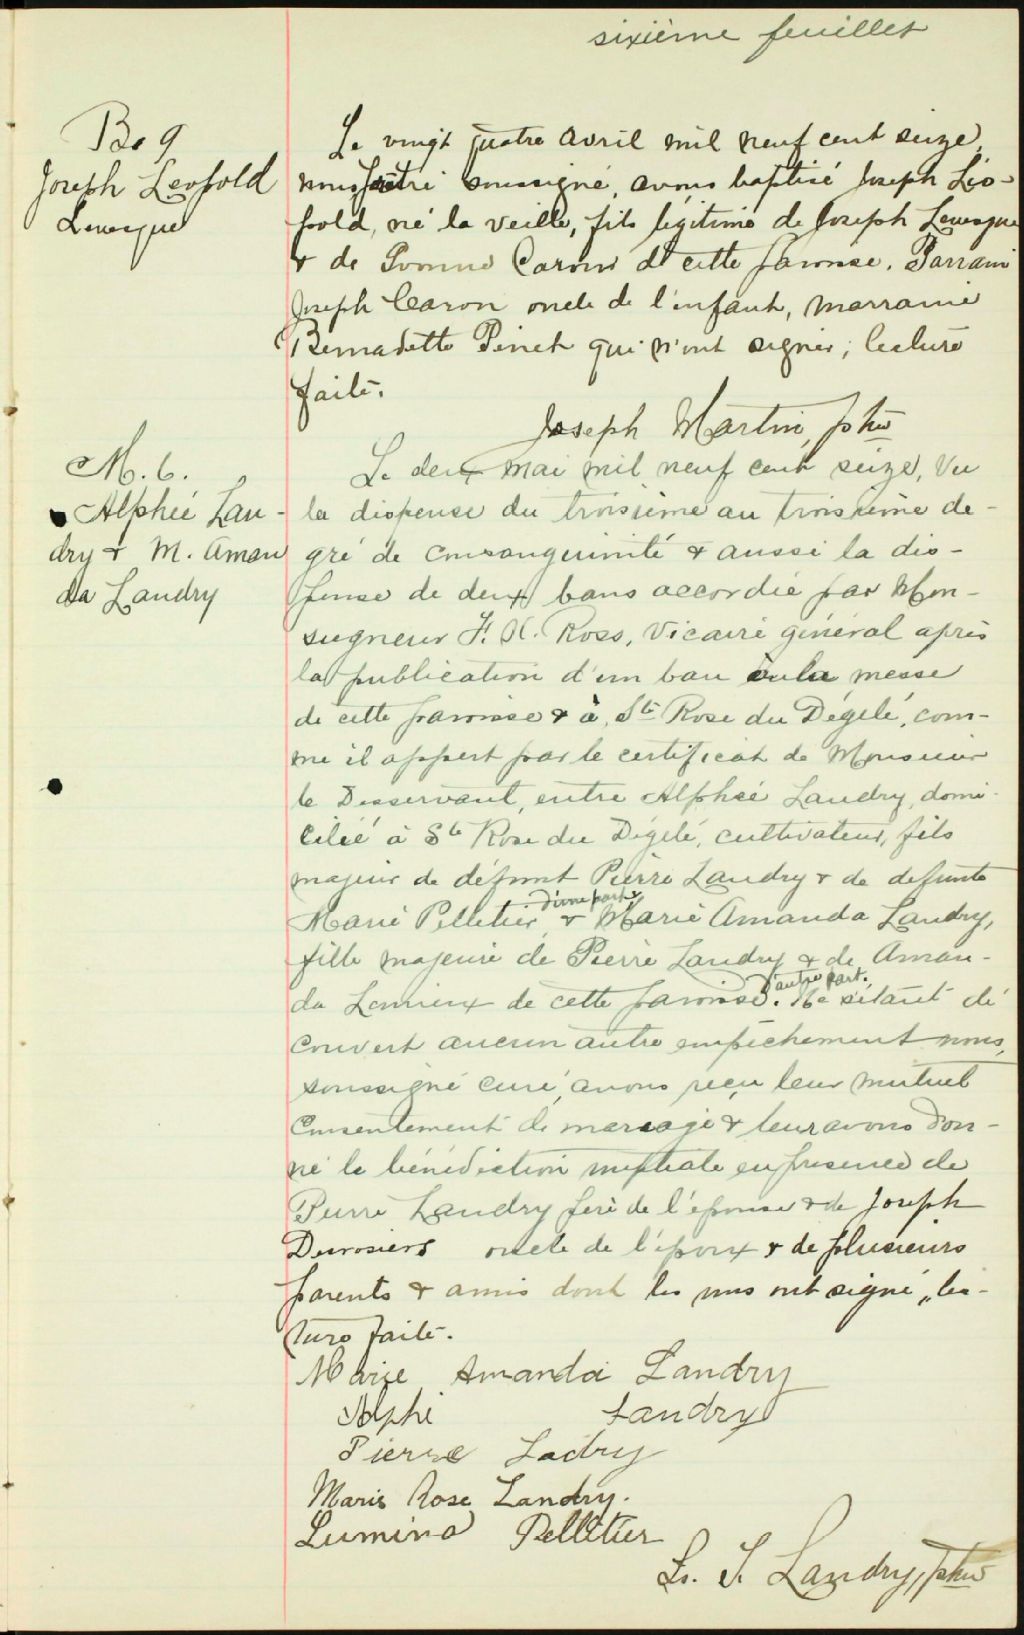 sixième feuillet
B. 9
Joseph Leopold
Levesque
Le vingt quatre avril mil neuf cent seize,
nous prêtre soussigné, avons baptisé Joseph Léo-
pold, né la veille, fils légitime de Joseph Levesque
& de Yvonne Caron de cette paroisse. Parrain
Joseph Caron oncle de l'enfant, marraine
Bernadette Pinet qui n'ont signer; lecture
faite.
Joseph Martin, ptre
M. 6.
Alphée Lan-
dry & M. Aman
da Landry
Le deux mai mil neuf cent seize, Vu
la dispense du troisième au troisième de-
gré de consanguinité & aussi la dis-
pense de deux bans accordée par Mon-
seigneur F. X. Ross, Vicaire général après
la publication d'un ban à la messe
de cette paroisse & à Ste Rose du Dégelé, com-
me il appert par le certificat de Monsieur
le Desservant, entre Alphée Landry, domi-
cilié à Ste Rose du Dégelé, cultivateur, fils
majeur de défunt Pierre Landry & de defunte
Marie Pelletier, d'une part, & Marie Amanda Landry,
fille majeure de Pierre Landry & de Aman-
da Lemieux de cette paroisse d'autre part. Ne s'étant dé
couvert aucun autre empêchement nous,
soussigné curé, avons reçu leur mutuel
consentement de mariage & leur avons don-
né la bénédiction nuptiale en présence de
Pierre Landry père de l'épouse & de Joseph
Desrosiers oncle de l'époux & de plusieurs
parents & amis dont les uns ont signé, lec-
ture faite.
Marie Amanda Landry
Alphé Landry
Pierre Ladry
Marie Rose Landry.
Lumina Pelletier
Ls. J. Landry, ptre